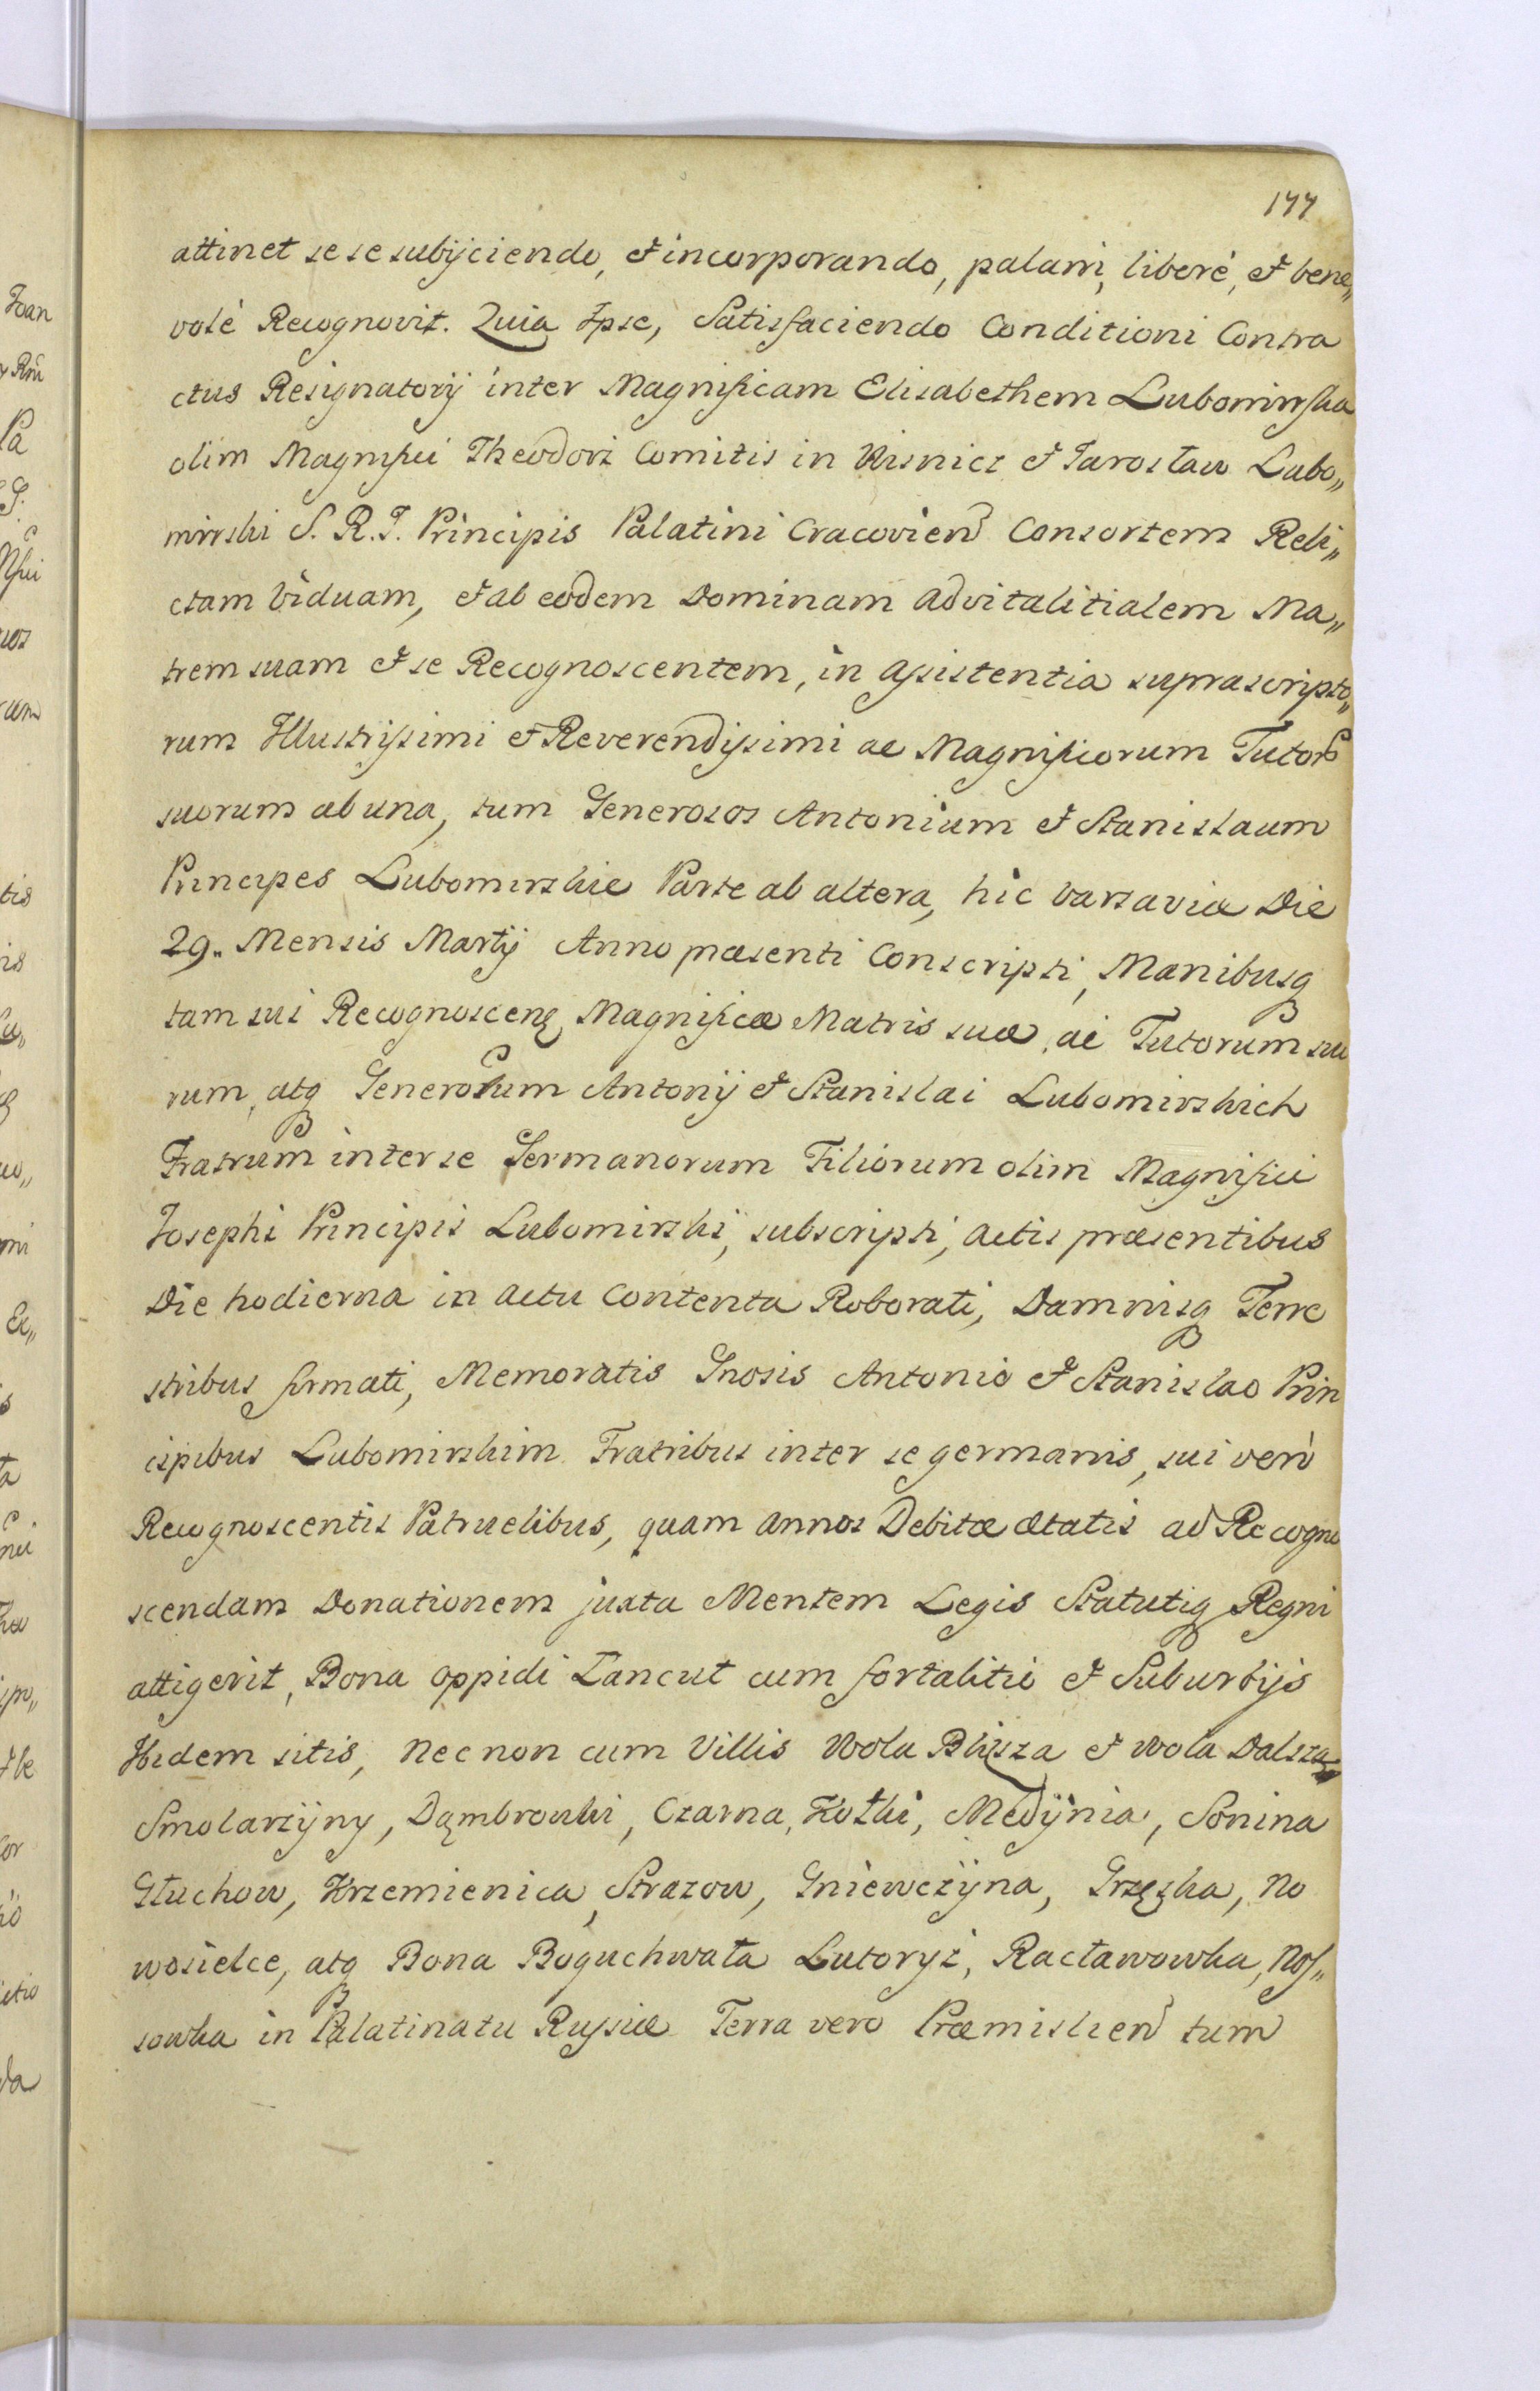 177
attinet sese subijciendo, et incorporando, palam, liberè, et bene„
volè Recognovit. Quia Ipse, Satisfaciendo Conditioni Contra
ctus Resignatorij inter Magnificam Elisabethem Lubomirska
olim Magnifici Theodori Comitis in Wisnicz et Jarosław Lubo„
mirski S. R. I. Principis Palatini Cracovien Consortem Reli„
ctam Viduam, et ab eodem Dominam advitalitialem Ma„
trem suam et se Recognoscentem, in assistentia suprascripto„
rum Illustrissimi et Reverendissimi ac Magnificorum Tutor
suorum ab una, tum Generosos Antonium et Stanislaum
Principes Lubomirskie Parte ab altera, hic Varsaviæ Die
29. Mensis Martij Anno præsenti Conscripti, Manibusq
tam sui Recognoscen, Magnificæ Matris suæ, ac Tutorum suo
rum, atq Generorum Antonij et Stanislai Lubomirskich
Fratrum inter se Germanorum Filiorum olim Magnifici
Josephi Principis Lubomirski, subscripti, actis præsentibus
Die hodierna in actu Contenta Roborati, Damnisq Terre
stribus firmati, Memoratis Gnosis Antonio et Stanislao Prin
cipibus Lubomirskim Fratribus inter se germanis, sui verò
Recognoscentis Patruelibus, quam annos Debitæ ætatis ad Recogno
scendam Donationem juxta Mentem Legis Statutiq Regni
attigerit, Bona oppidi Łancut cum fortalitio et Suburbijs
Ibidem sitis, nec non cum Villis Wola Bliższa et Wola Dalsza
Smolarzyny, Dąmbrowki, Czarna, Kotki, Medÿnia, Sonina
Głuchow, Krzemienica, Strazow, Gniewczyna, Grzęska, No
wosielce, atq Bona Boguchwała Lutoryż, Racławowka, Nos„
sowka in Palatinatu Russiæ Terra vero Præmislien tum